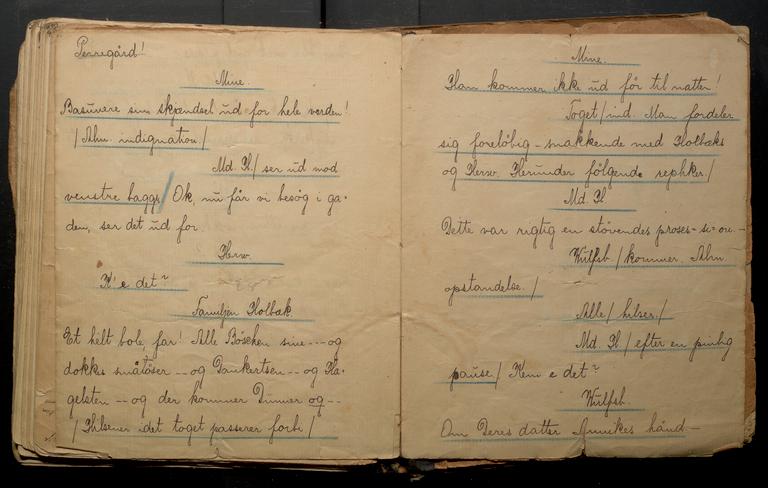 Perregård!
Mine.
Basunere sin skjændsel ud for hele verden!
/ Alm. indignation /
Md. H. / ser ud mod
venstre baggr. / Ok, nu får vi besøg i ga-
den, ser det ud for.
Herw.
H' e det?
Familjen Holbæk
Et helt bole, far! Alle Böscken sine -- og
dokkes småtöser -- og Dankertsen -- og Ha-
gelsten -- og der kommer Dinner og --
/ Hilsener idet toget passerer forbi /
Mine.
Han kommer ikke ud før til natten!
Toget / ind. Man fordeler
sig foreløbig - snakkende med Holbæks
og Herw. Herunder følgende repliker /
Md. H
Dette var rigtig en støvendes proses- si- on. -
Wulfsb / kommer. Alm.
opstandelse. /
Alle / hilser. /
Md. H / efter en pinlig
pause / Hem e det?
Wulfsb.
Om Deres datter Annikes hånd -